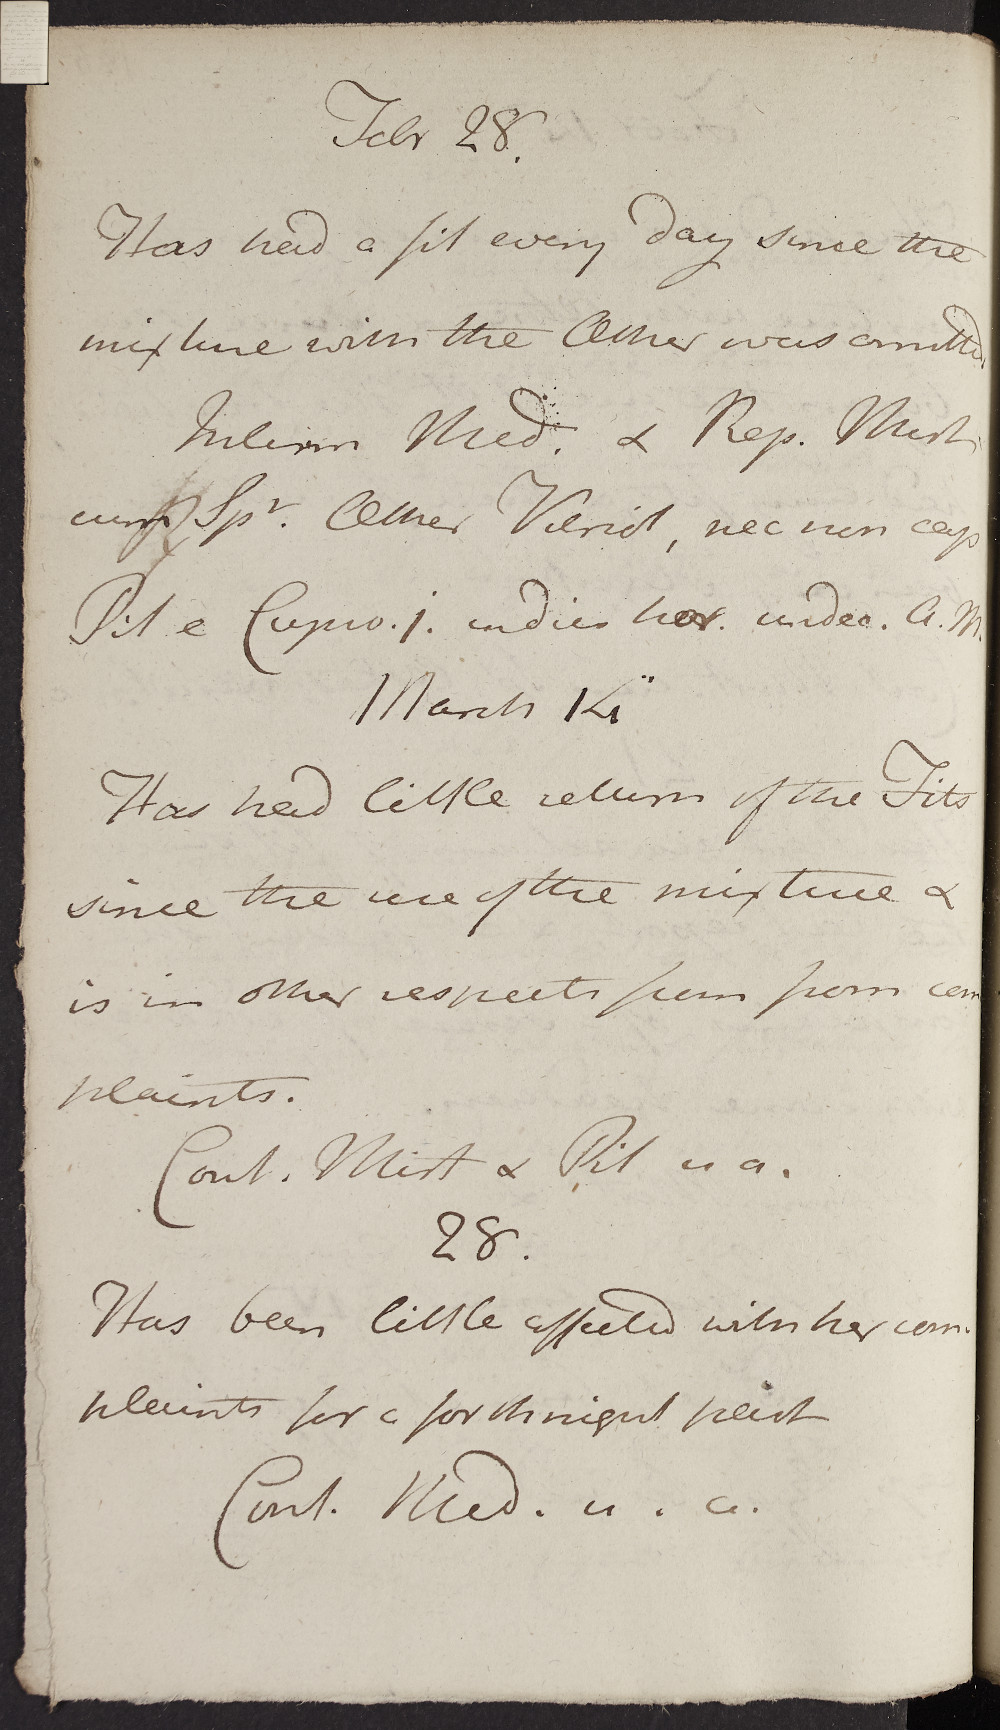 Febr 28.
Has had a fit every day since the
mixture with the Æther was omitted
Interm Med. & Rep. Mist.
cum Spr. Æther Vitriol, nec non cap
Pil e Cupro. j. indies hor. undec. A.M.
March
Has had little return of the Fits
since the use of the mixture &
is in other respects from com
plaints.
Cont. Mist & Pil u a.
28.
Has been little affected with her com-
plaints for a forthnight past
Cont. Med. u. a.